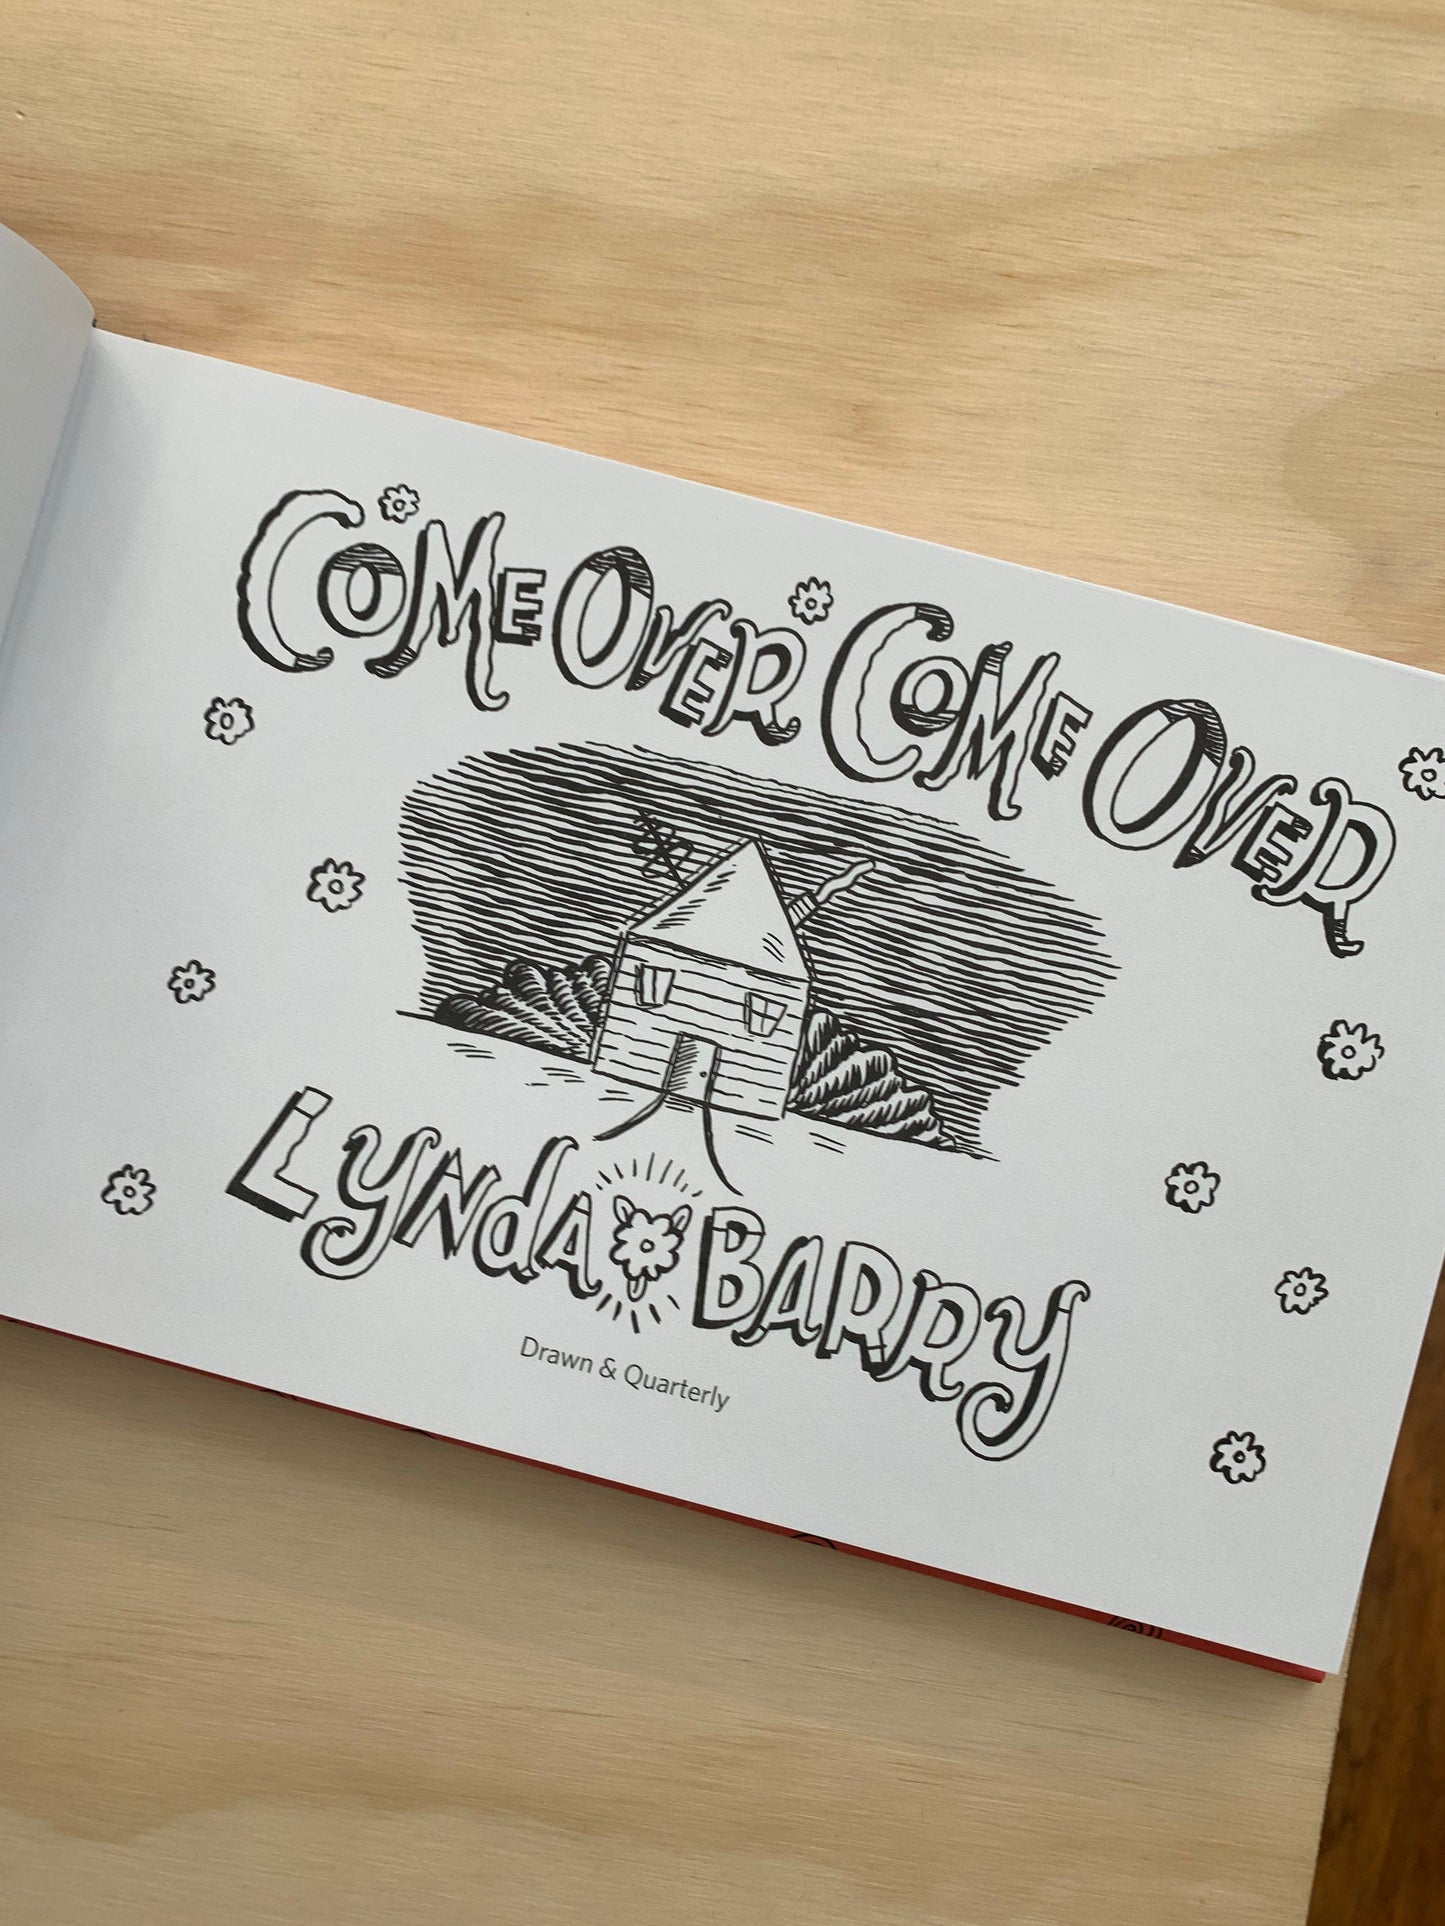 COME OVER COME OVER
LYNdA BARRY
Drawn & Quarterly